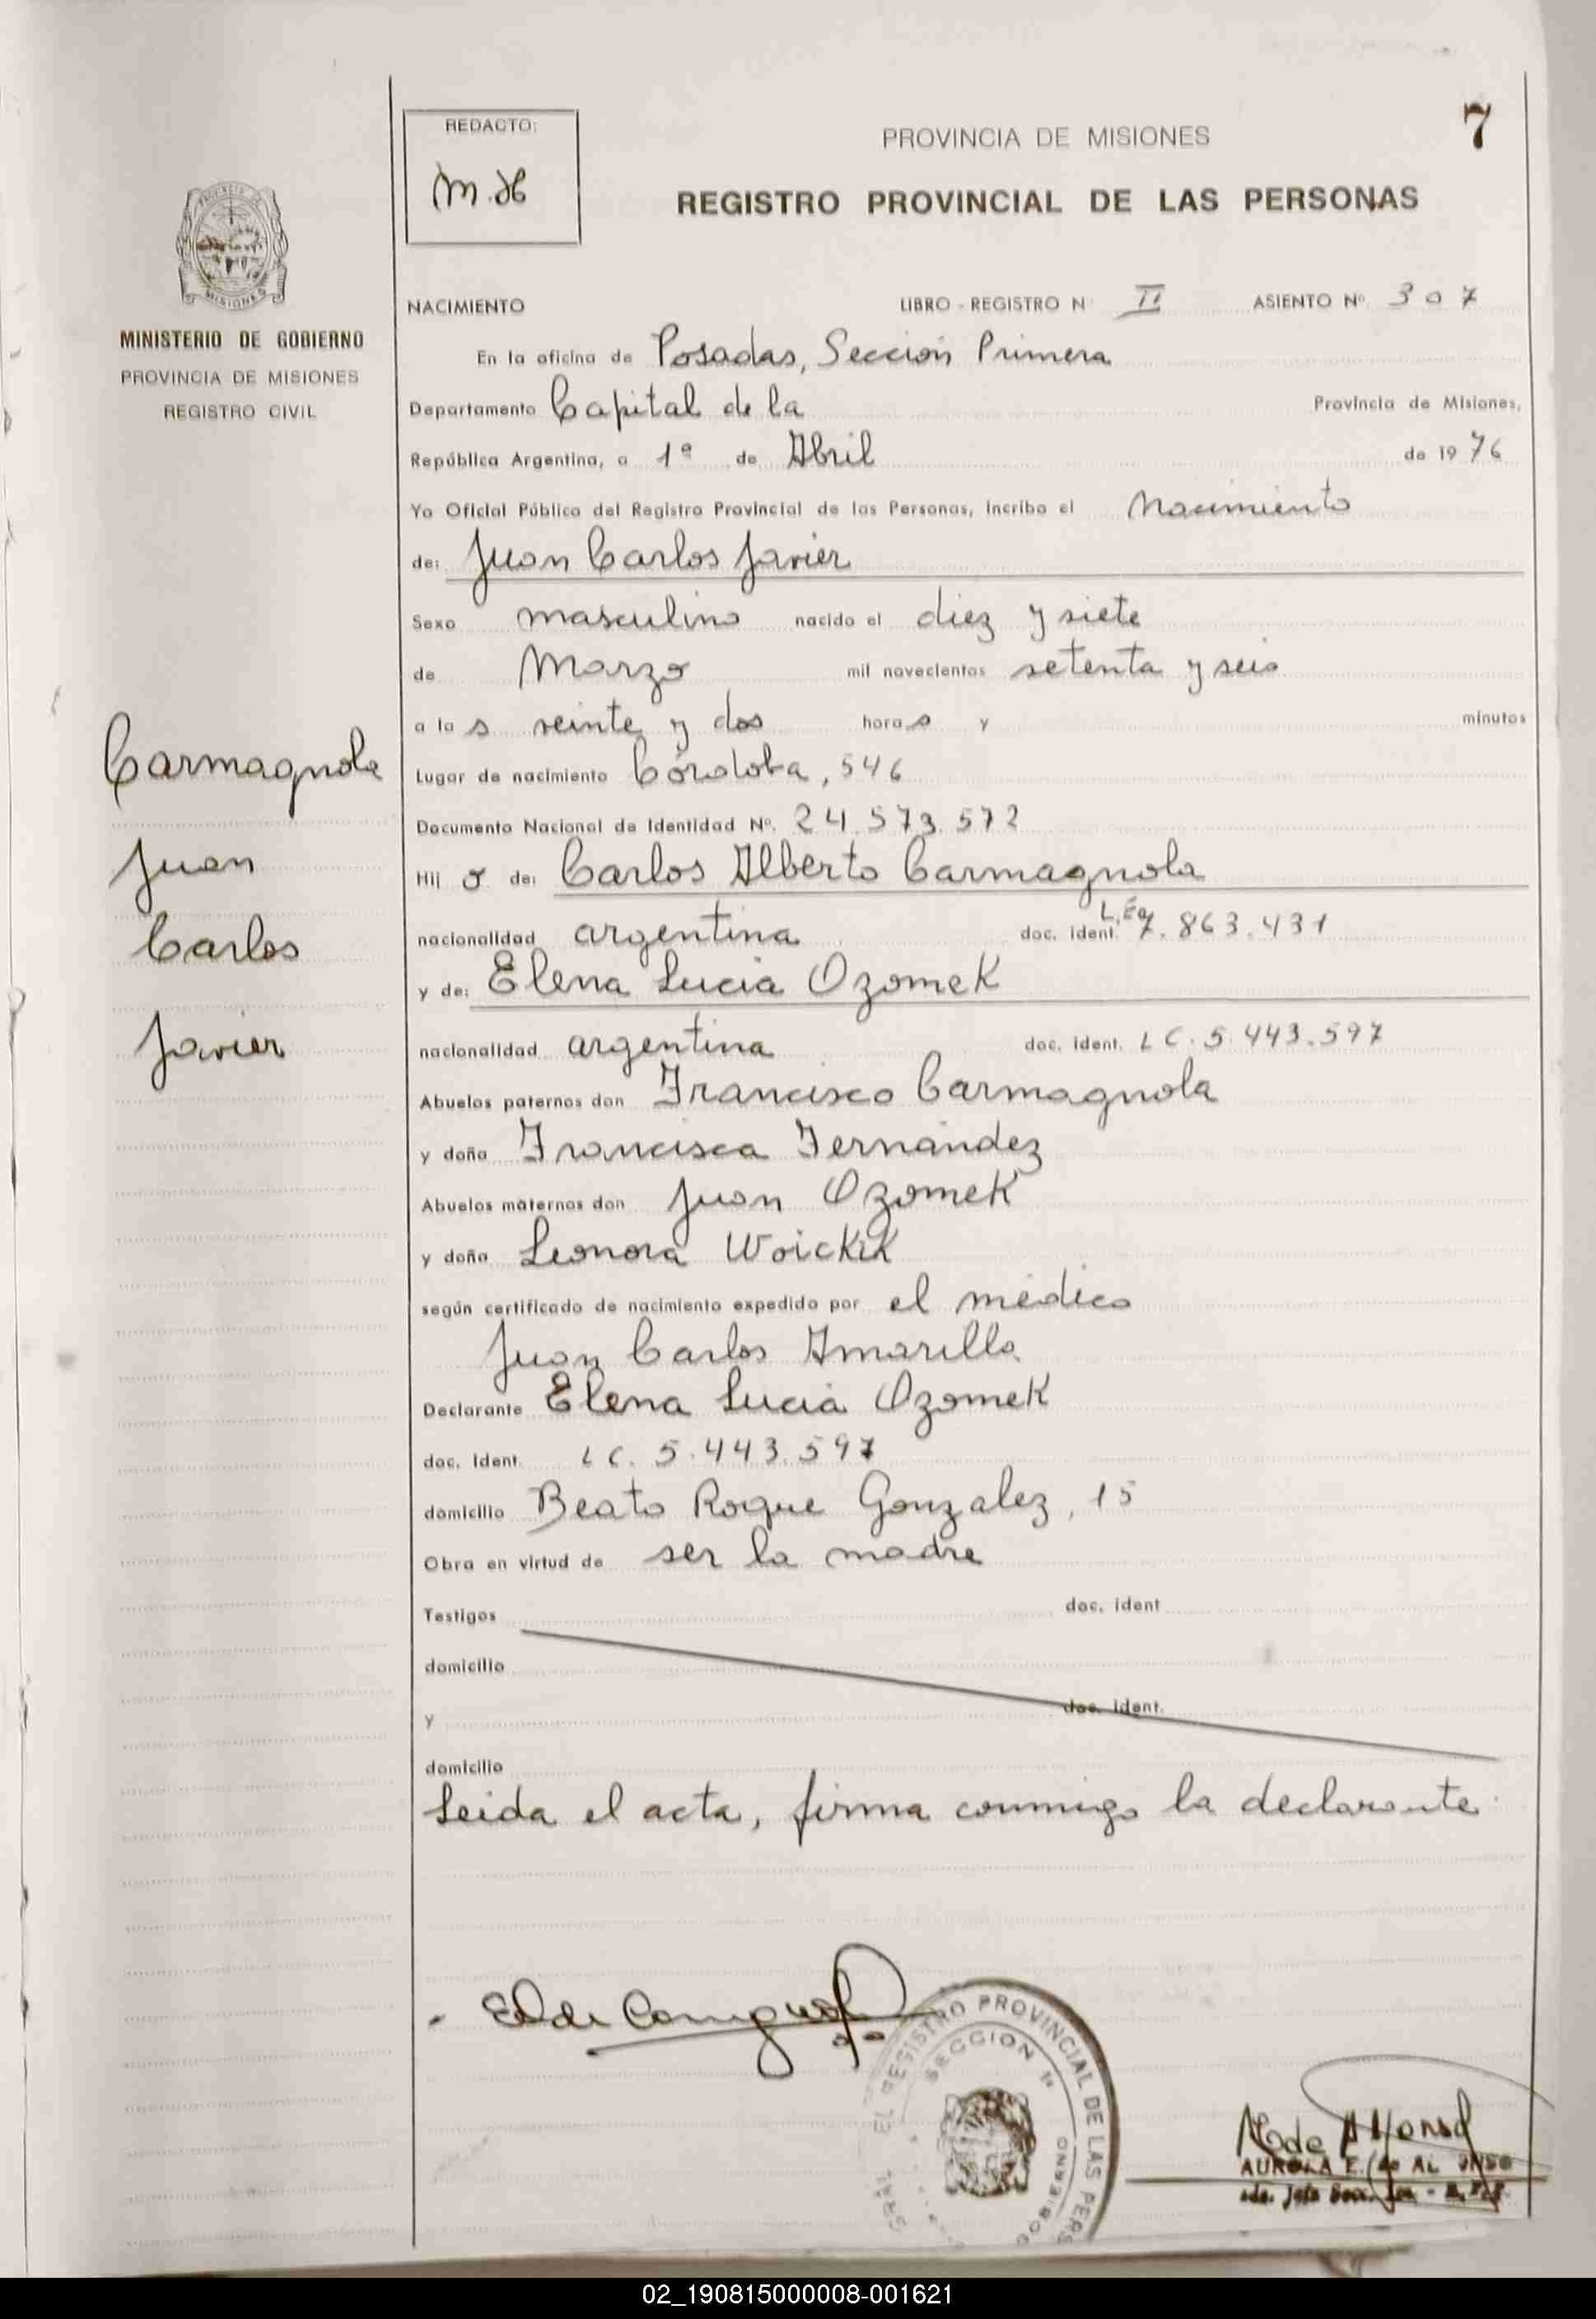 7
REDACTO:
PROVINCIA DE MISIONES
M.H
REGISTRO PROVINCIAL DE LAS PERSONAS
MISIONES
MINISTERIO DE GOBIERNO
PROVINCIA DE MISIONES
REGISTRO CIVIL
NACIMIENTO LIBRO - REGISTRO Nº II ASIENTO Nº 307
En la oficina de Posadas, Sección Primera
Departamento Capital de la Provincia de Misiones,
República Argentina, a 1º de Abril de 1976
Yo Oficial Público del Registro Provincial de las Personas, incribo el Nacimiento
de: Juan Carlos Javier
Sexo masculino nacido el diez y siete
de Marzo mil novecientos setenta y seis
a la s veinte y dos hora s y minutos
Carmagnola
Juan
Carlos
Javier
Lugar de nacimiento Córdoba, 546
Documento Nacional de Identidad Nº. 24.573.572
Hij o de: Carlos Alberto Carmagnola
nacionalidad argentina doc. ident. L.Eq 7.863.431
y de: Elena Lucia Ozomek
nacionalidad argentina doc. ident. LC. 5.443.597
Abuelos paternos don Francisco Carmagnola
y doña Francisca Fernández
Abuelos maternos don Juan Ozomek
y doña Leonora Woickik
según certificado de nacimiento expedido por el médico
Juan Carlos Amarilla
Declarante Elena Lucia Ozomek
doc. ident. LC. 5.443.597
domicilio Beato Roque Gonzalez, 15
Obra en virtud de ser la madre
Testigos doc. ident
domicilio
y doc. ident.
domicilio
Leida el acta, firma conmigo la declarante
REGISTRO PROVINCIAL DE LAS PERS
SECCION 1ª
GOBIERNO
AURORA E. de ALFONSO
02_190815000008-001621